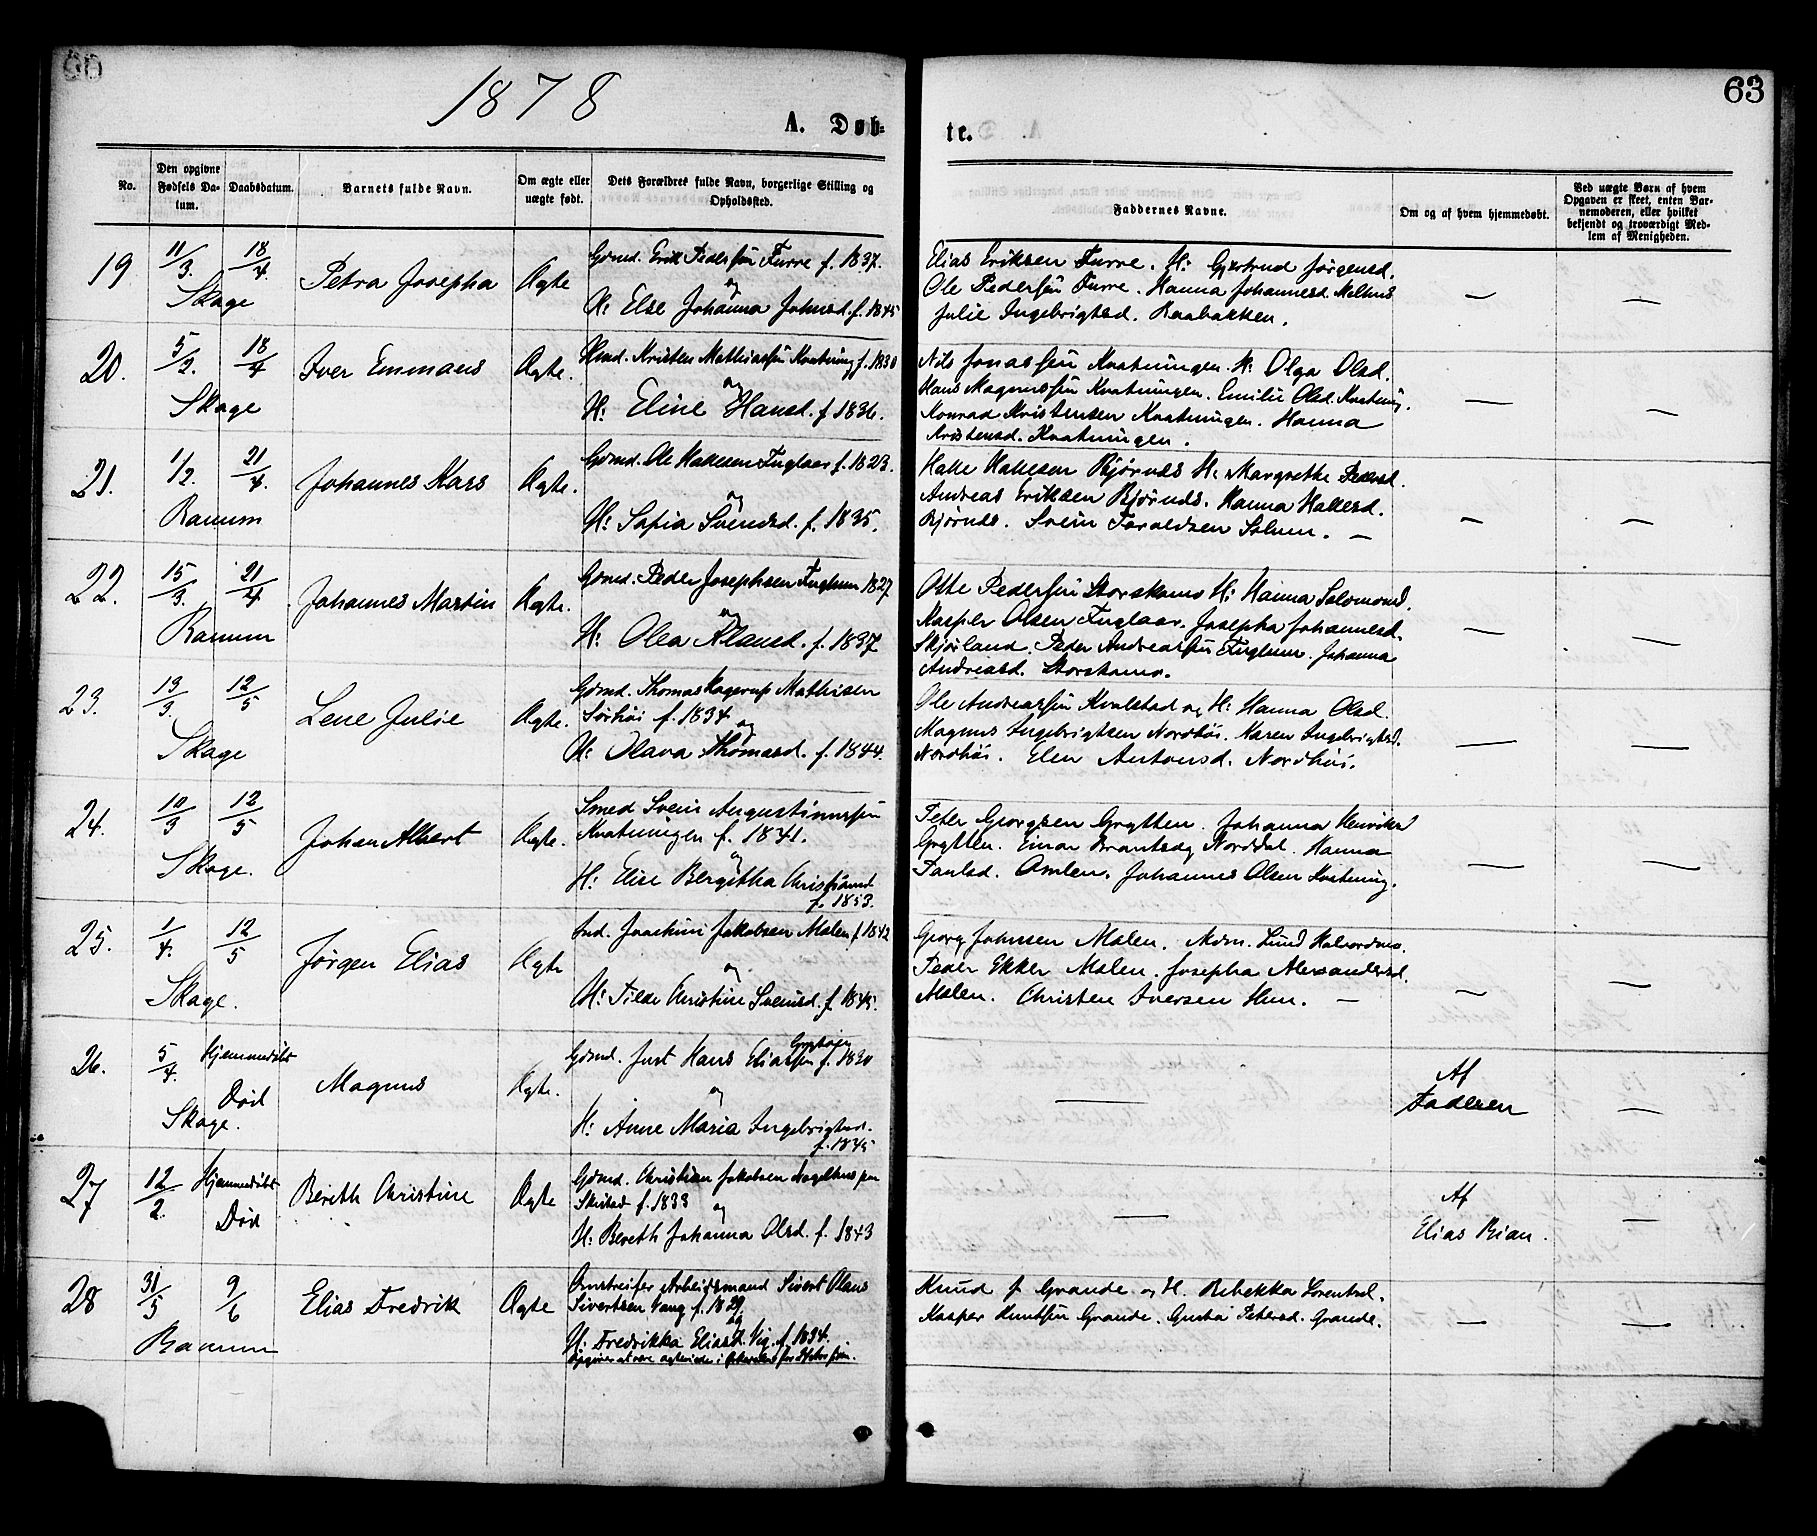 1878
63
A. Døb-
te.
No.
Den opgivne Fødsels Da-tum.
Daabsdatum.
Barnets fulde Navn.
Om ægte eller uægte født.
Dets Forældres fulde Navn, borgerlige Stilling og Opholdssted.
Faddernes Navne.
Om og af hvem hjemmedøbt.
Ved uægte Børn af hvem Opgaven er skeet, enten Bar-nemoderen, eller hvilket bekjendt og troværdigt Med-lem af Menigheden.
19 11/3. 18/4. Skage
Petra Josepha Ægte
Gdmd. Erik Pedersen Furre f. 1837.
og
H: Else Johanna Johnsd. f. 1845
Elias Eriksen Furre. H: Gjertrud Jørgensd.
Ole Pedersen Furre. Hanna Johannesd. Melhus
Julie Ingebrigtsd. Raabakken.
20. 5/2. 18/4 Skage
Iver Emmaus Ægte.
Hmd. Kristen Mathiassen Kvatning f. 1830
og
H: Eline Hansd. f. 1836.
Nils Jonassen Kvatningen. H: Olga Olsd.
Hans Magnussen Kvatningen. Emilie Olsd. Kvatning.
Konrad Kristensen Kvatningen. Hanna
Kristensd. Kvatningen.
21. 1/2. 21/4. Ranum
Johannes Kars Ægte.
Gdmd. Ole Hallesen Fuglaar f. 1823.
og
H: Sofia Svendsd. f. 1835.
Halle Hallesen Bjørnes H: Margrethe Pedersd.
Andreas Eriksen Bjørnes. Hanna Hallesd.
Bjørnes. Svein Taraldsen Solum. —
22. 15/3. 21/4 Ranum
Johannes Martin Ægte.
Gdmd. Peder Josephsen Fuglum 1827
og
H: Olea Klausd. f. 1837
Otte Pedersen Storskamo H: Hanna Salomonsd.
Kasper Olsen Fuglaar. Josepha Johannesd.
Skjørland. Peder Andreassen Fuglum. Johanna
Andreasd. Storskamo.
23. 13/3. 12/5 Skage
Lene Julie Ægte.
Gdmd. Thomas Kagerup Mathisen
Sørhøi f. 1834 og
H: Olava Thomasd. f. 1844.
Ole Andreassen Kvalstad og H: Hanna Olsd.
Magnus Ingebrigtsen Nordhøi. Karen Ingebrigtsd.
Nordhøi. Elen Antonsd. Nordhøi.
24. 10/3 12/5 Skage.
Johan Albert Ægte.
Smed Svein Augustinussen
Kvatningen f. 1841.
og
H: Elise Bergitha Christiansd.
f. 1853.
Peter Georgsen Grytten. Johanna Henriksd
Grytten. Einar Brantsæg Norddal. Hanna
Paulsd. Amlen. Johannes Olsen Kvatning.
25. 1/4. 12/5 Skage.
Jørgen Elias Ægte
Ind. Joachim Jakobsen Moelen f. 1842
og
H: Tilde Christine Svensd. f. 1845.
Georg Johnsen Moelen. Mdm. Lund Halvordmo.
Peder Ekker Moelen. Josepha Alexandersd.
Moelen. Christen Iversen Hun. —
26. 5/4. Hjemmedøbt Død Skage.
Magnus Ægte.
Gdmd. Just Hans Eliassen f. 1820
og
H: Anne Maria Ingebrigtsd.
f. 1845
Af
Faderen
27 12/2. Hjemmedøbt Død
Bereth Christine Ægte
Gdmd. Christian Jakobsen
Skistad f. 1833 og
H: Bereth Johanna Olsd. f. 1843
Af
Elias Bian.
28 31/5 9/6 Ranum
Elias Fredrik Ægte
Omstreifer Arbeidsmand Sivert Olaus
Sivertsen Vang f. 1829.
og
H: Fredrikka Eliasd. Vig. f. 1834.
Knud J Grande og H. Rebekka Lorentsd.
Kasper Knutsen Grande. Gusta Petersd. Grande.